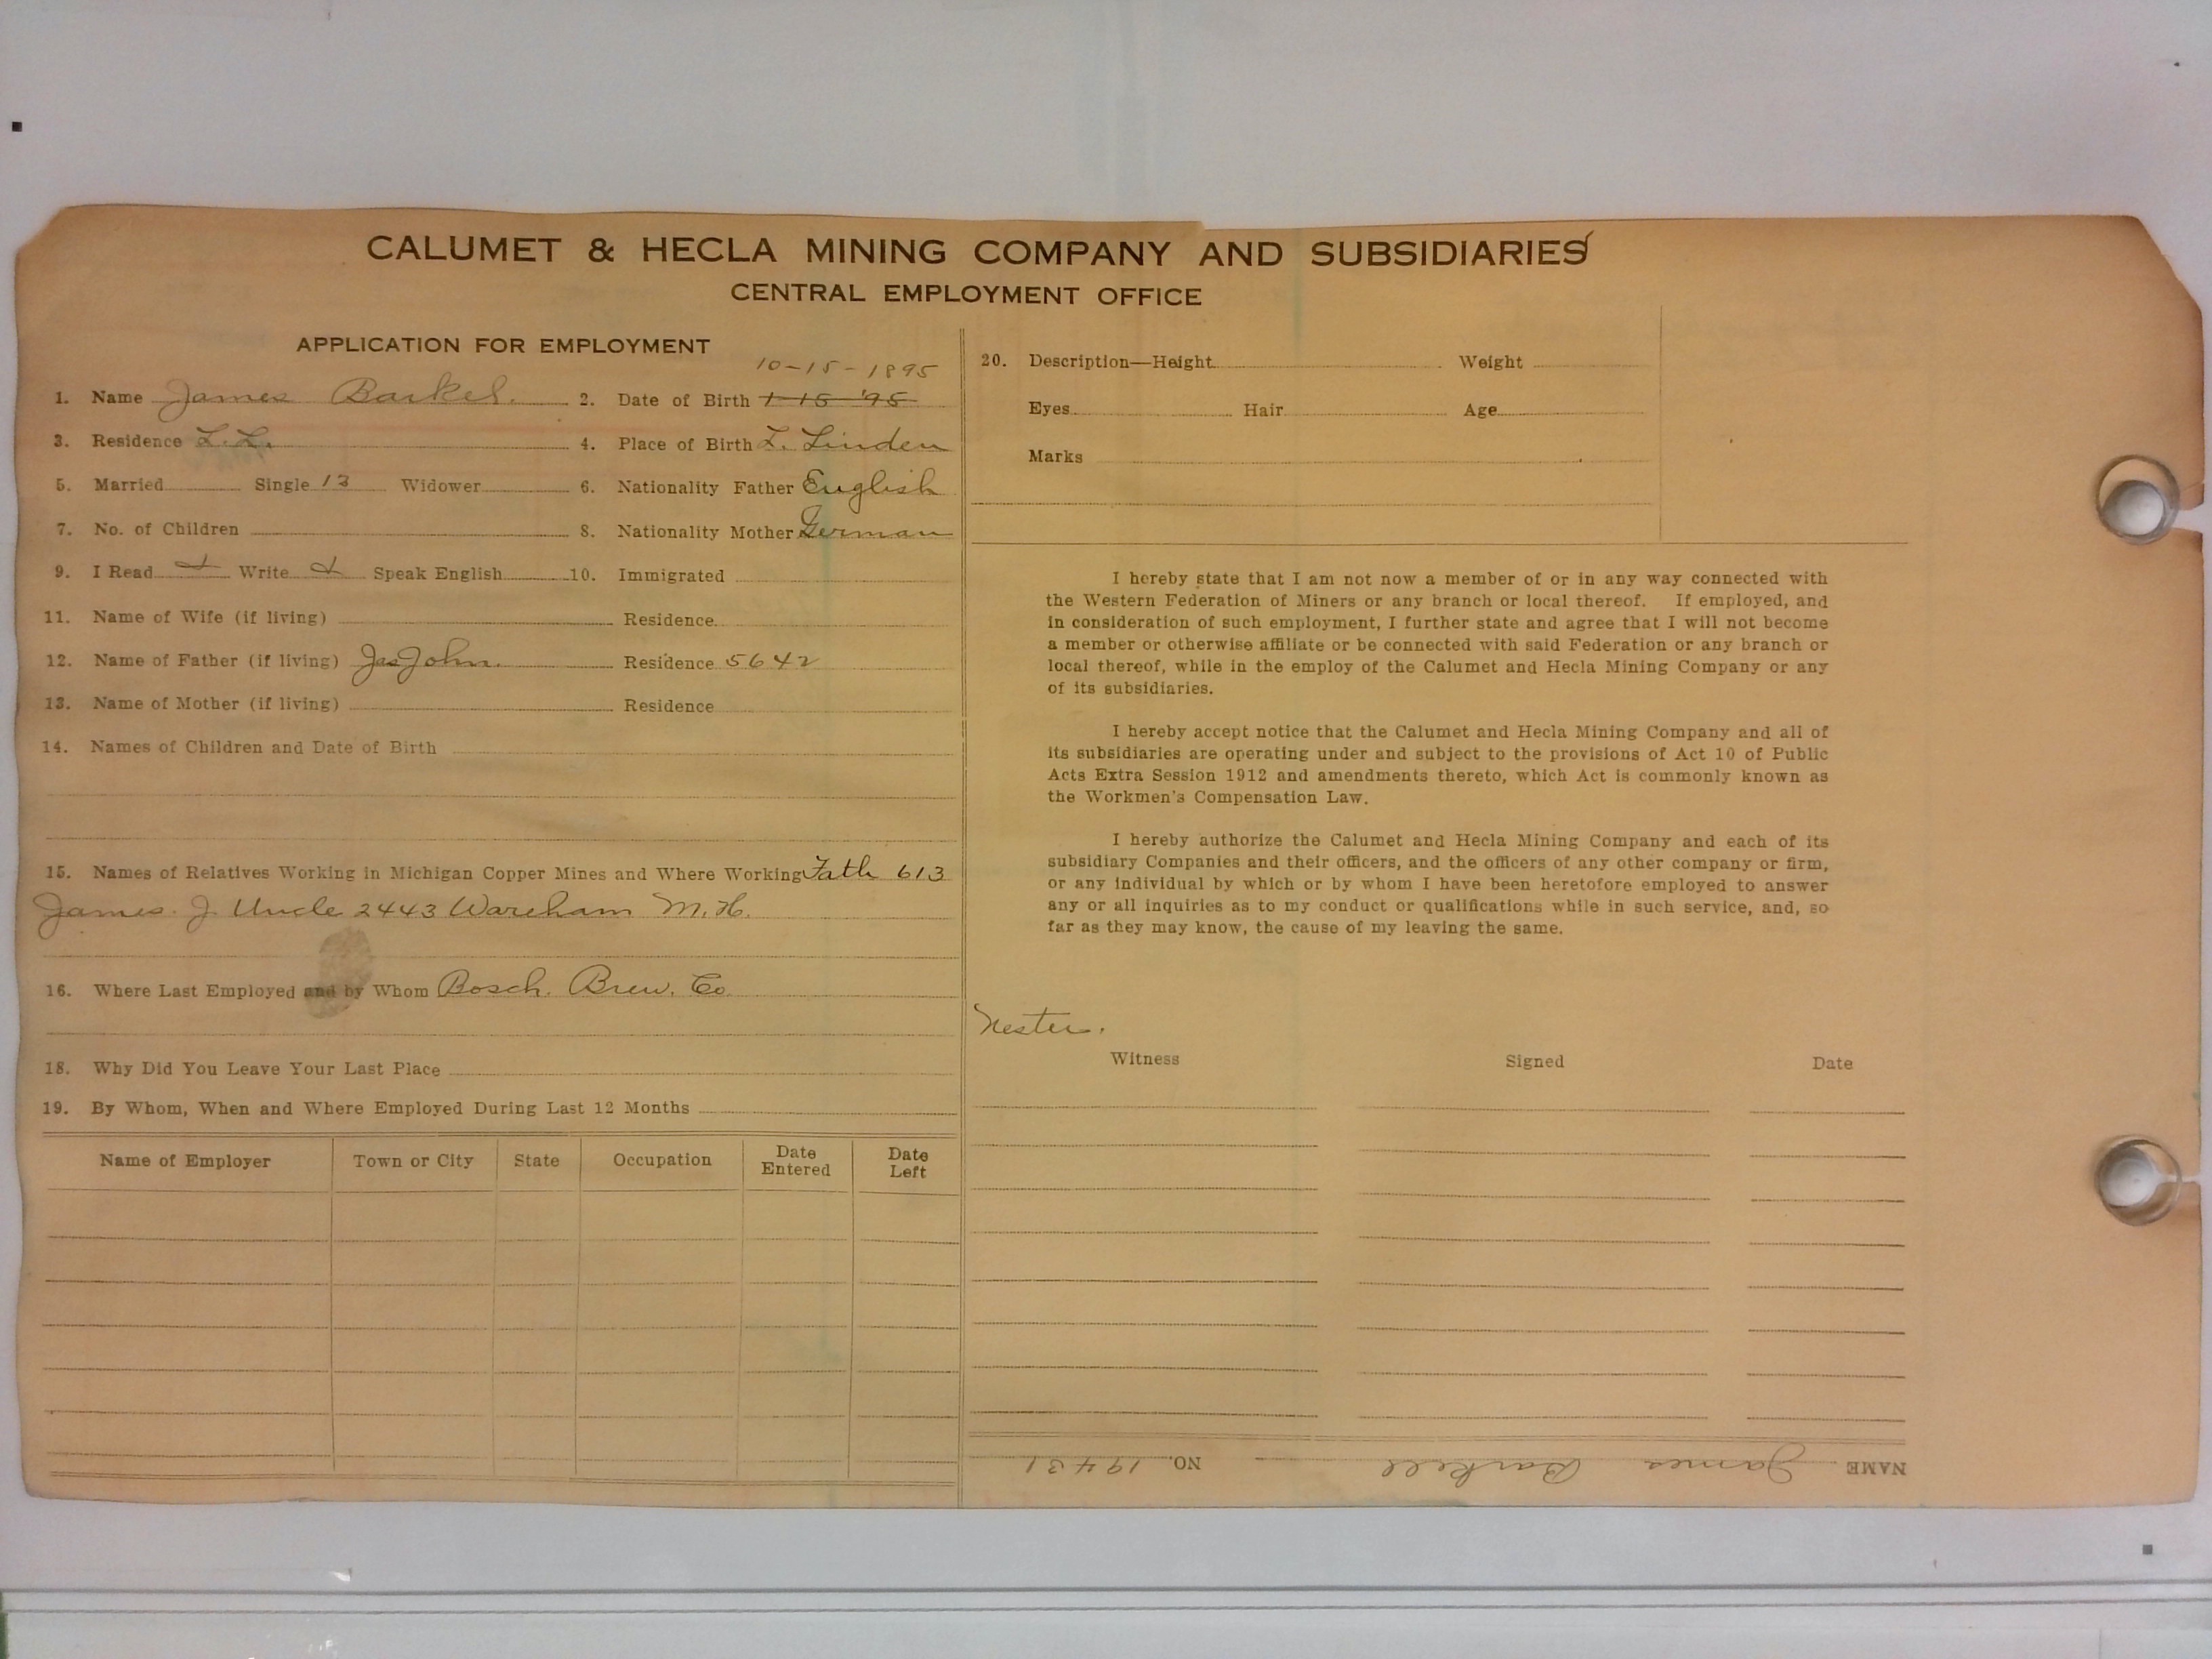 CALUMET & HECLA MINING COMPANY AND SUBSIDIARIES
CENTRAL EMPLOYMENT OFFICE
APPLICATION FOR EMPLOYMENT
10-15-1895
1. Name James Barkel. 2. Date of Birth 1-15-'95
3. Residence L.L. 4. Place of Birth L. Linden
5. Married Single 13 Widower 6. Nationality Father English
7. No. of Children 8. Nationality Mother German
9. I Read Write Speak English 10. Immigrated
11. Name of Wife (if living) Residence
12. Name of Father (if living) Jas John. Residence 5642
13. Name of Mother (if living) Residence
14. Names of Children and Date of Birth
15. Names of Relatives Working in Michigan Copper Mines and Where Working Fath 613
James. J. Uncle 2443 Wareham M.H.
16. Where Last Employed and by Whom Bosch. Brew. Co.
18. Why Did You Leave Your Last Place
19. By Whom, When and Where Employed During Last 12 Months
Name of Employer Town or City State Occupation Date Entered Date Left
20. Description—Height Weight
Eyes Hair Age
Marks
I hereby state that I am not now a member of or in any way connected with
the Western Federation of Miners or any branch or local thereof. If employed, and
in consideration of such employment, I further state and agree that I will not become
a member or otherwise affiliate or be connected with said Federation or any branch or
local thereof, while in the employ of the Calumet and Hecla Mining Company or any
of its subsidiaries.
I hereby accept notice that the Calumet and Hecla Mining Company and all of
its subsidiaries are operating under and subject to the provisions of Act 10 of Public
Acts Extra Session 1912 and amendments thereto, which Act is commonly known as
the Workmen's Compensation Law.
I hereby authorize the Calumet and Hecla Mining Company and each of its
subsidiary Companies and their officers, and the officers of any other company or firm,
or any individual by which or by whom I have been heretofore employed to answer
any or all inquiries as to my conduct or qualifications while in such service, and, so
far as they may know, the cause of my leaving the same.
Nester.
Witness Signed Date
NAME James Barkell NO. 19431